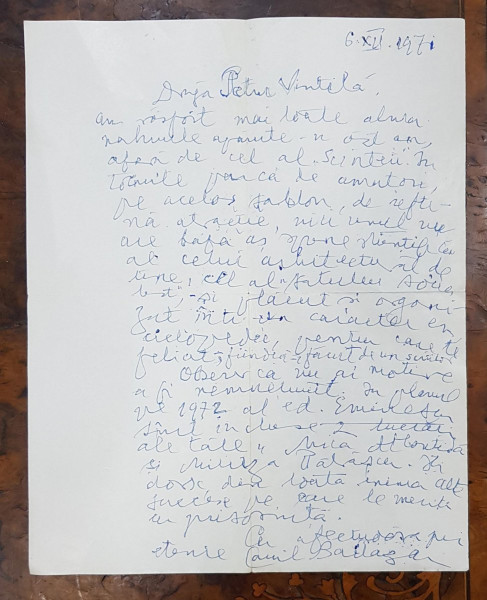 6.XII.1971
Dragă Petru Vintilă,
am răsfoit mai toate alma
nahurile apărute în ăst an,
afară de cel al „Scînteii". În
tocmite parcă de amatori,
pe același șablon, de iefti-
nă atracție, nici unul nu
are bază aș spune științifică
al celui arhitectural de
bine, cel al „Satului socia
list", și plăcut și organi
zat într-un caracter en
ciclopedic, pentru care te
felicit, fiindcă-i făcut de un singur
Observ că nu ai motive
a fi nemulțumit. În planul
pe 1972 al ed. Eminescu
sînt incluse 2 lucrări
ale tale „Mica Atlantidă
și Miliția
doresc din toată inima alte
succese pe care le meriți
cu prisosință.
Cu afectuoasă pri
etenie Camil Baltazar